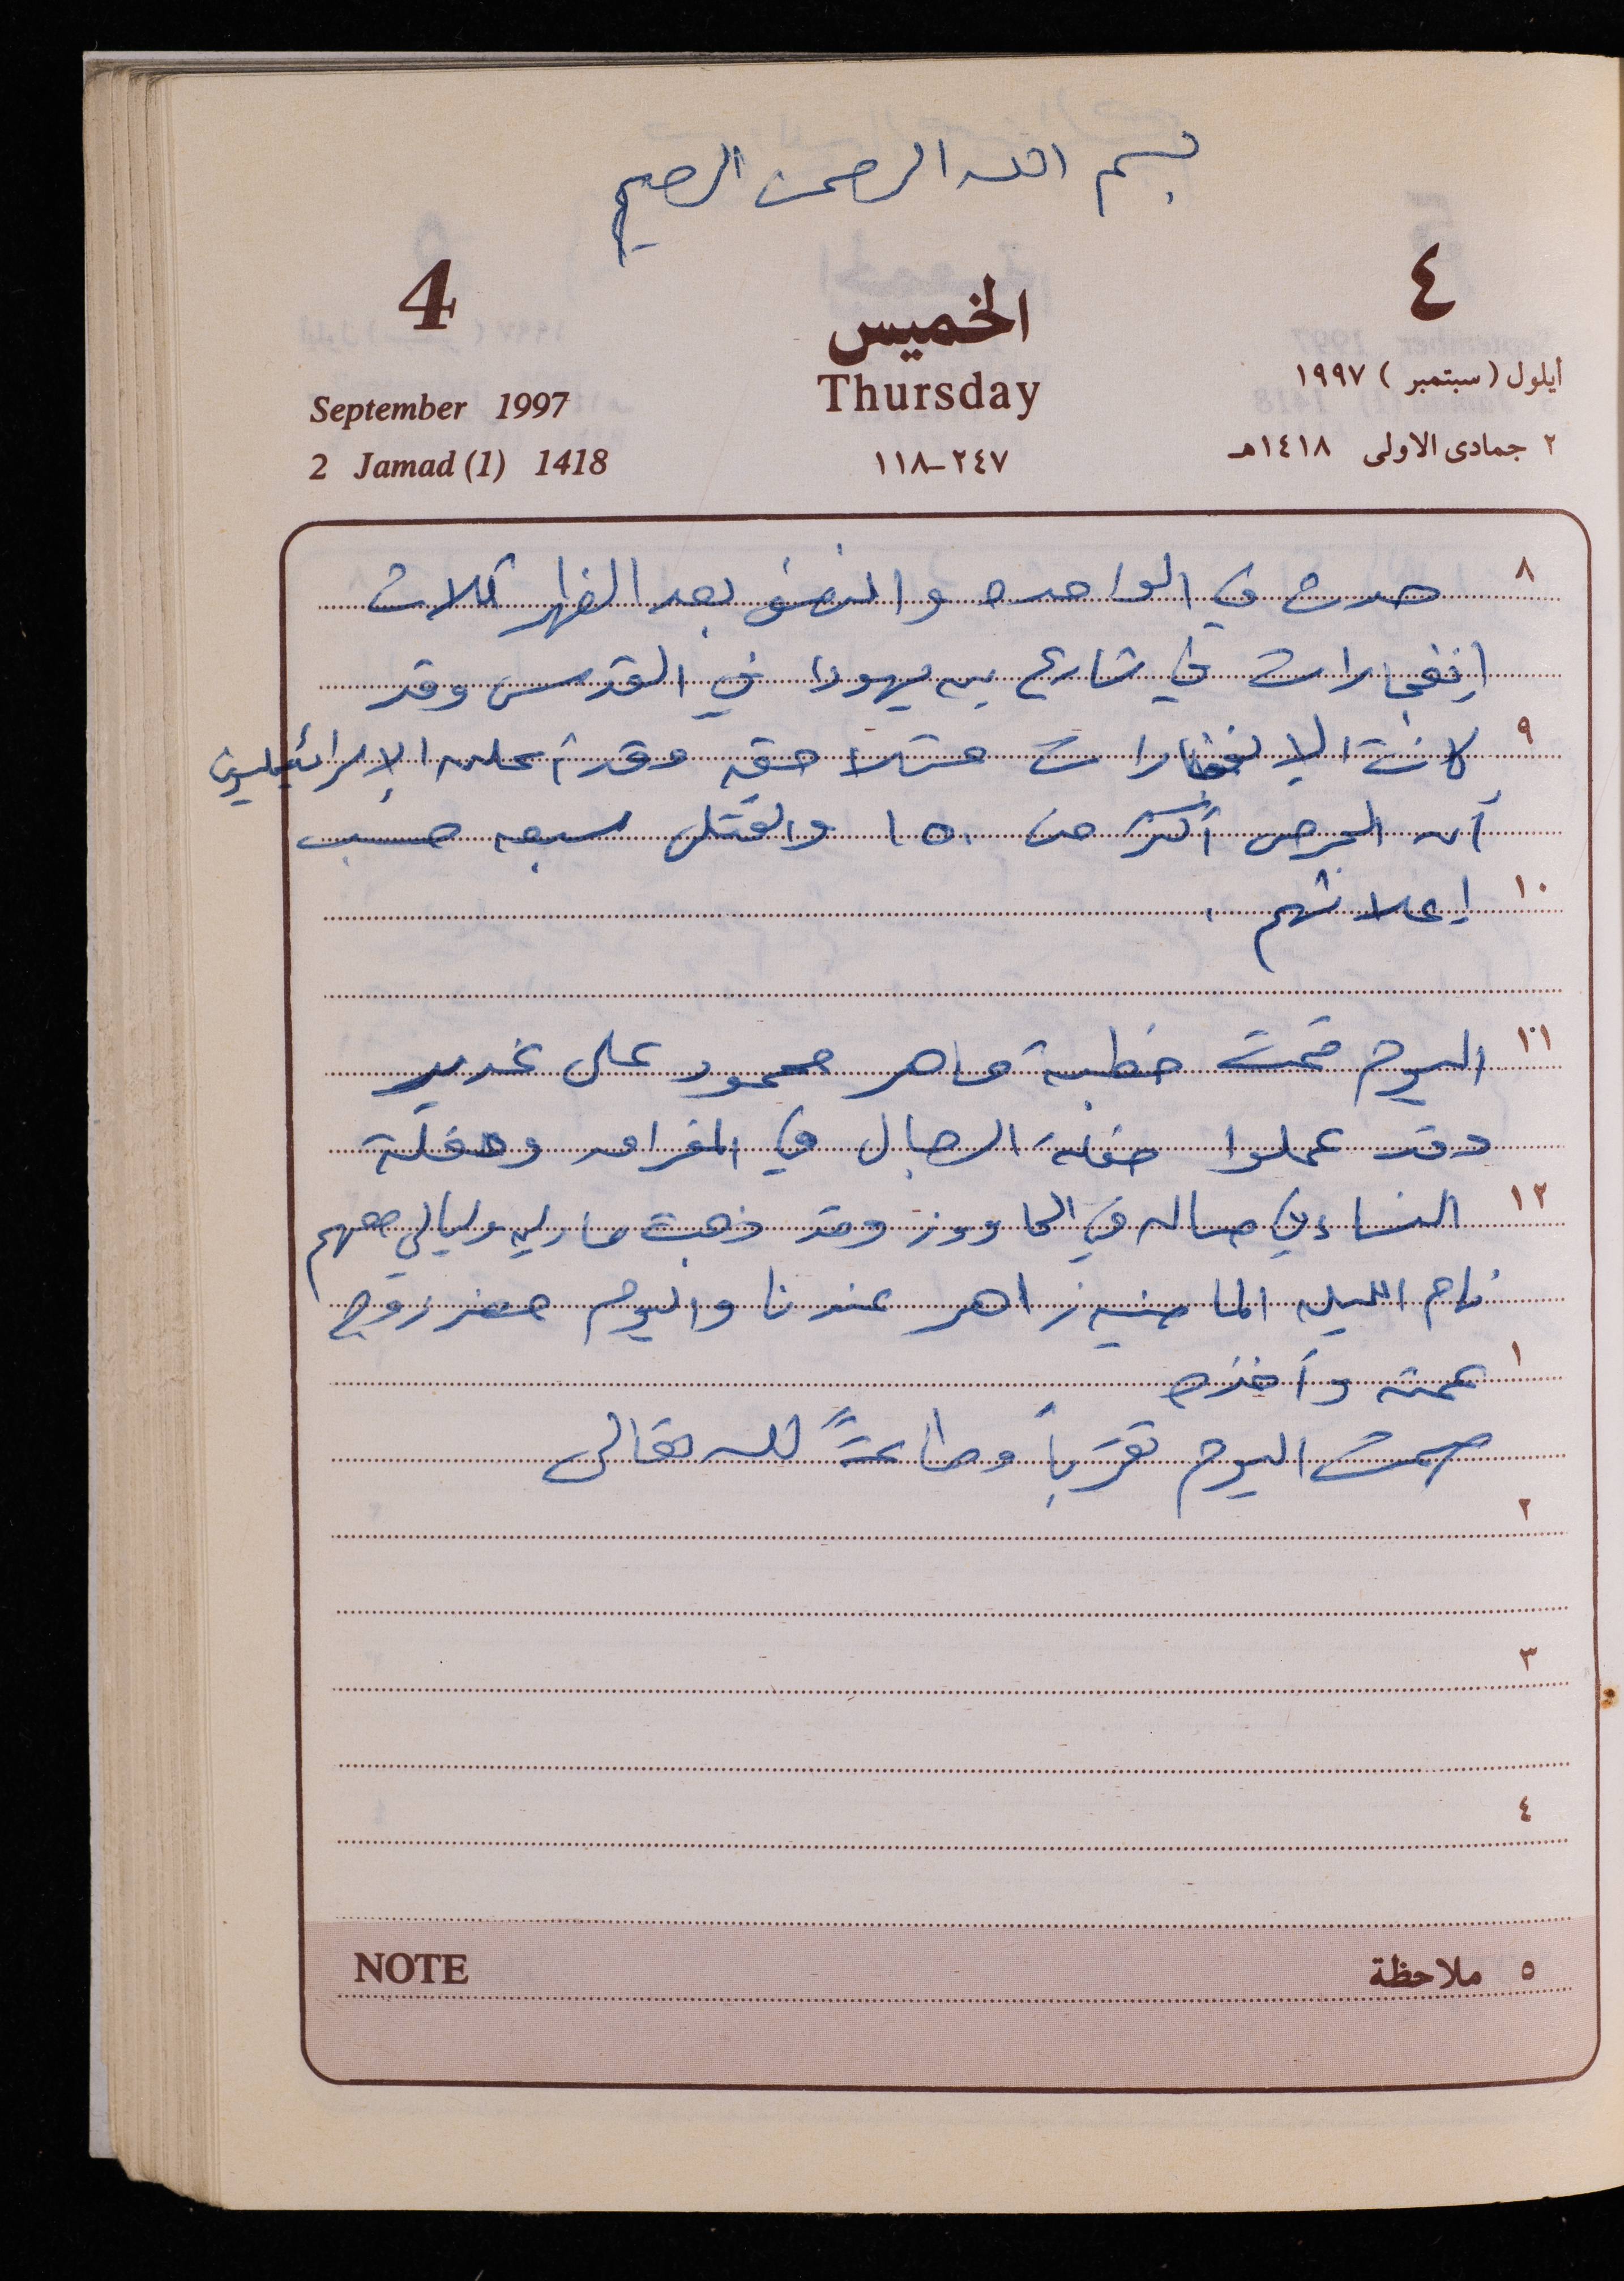 بسم الله الرحمن الرحيم
4 الخميس ٤
Thursday
September 1997 أيلول (سبتمبر) ١٩٩٧
2 Jamad (1) 1418 ٢٤٧-١١٨ ٢ جمادى الاولى ١٤١٨هـ
٨ حدث في الواحده والنصف بعد الظهر ثلاث
إنفجارات في شارع بن يهودا في القدس وقد
٩ كانت الإنفجارات متلاحقه وقد أعلن الإسرائيليين
أن الجرحى أكثر من ١٥٠ والقتلى سبعه حسب
١٠ إعلانهم .
١١ اليوم تمت خطبة ماهر محمود على غدير
وقد عملوا حفلة الرجال في الفرات وحفلة
١٢ النساء في صاله في الحاووز وقد ذهبت وليالي معهم
نام الليله الماضيه زاهر عندنا واليوم حضر زوج
١ عمته وأخذه
صمت اليوم تقرباً وطاعةً لله تعالى
٢
٣
٤
NOTE ٥ ملاحظة